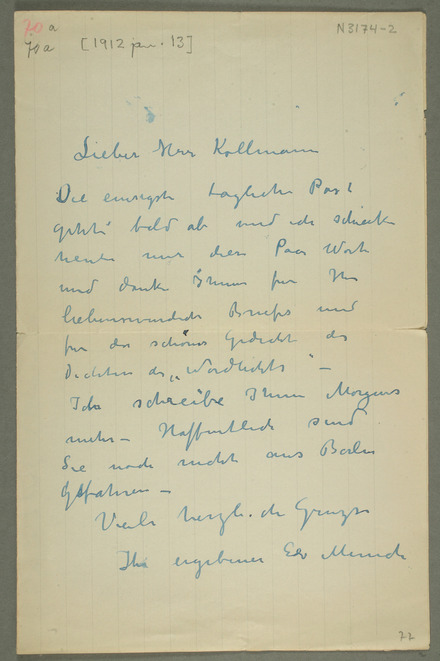 70 a
70 a
[1912 jan. 13]
N3174-2
Lieber Herr Kollmann
Die einzigste tagliche Post
geht bald ab und ich schicke
heute nur diese Paar Worte
und danke Ihnen fur Ihr
liebenswurdiche Briefe und
fur das schöne Gedicht des
Dichters des „Nordlichts" –
Ich schreibe Ihnen Morgens
mehr – Hoffentlich sind
Sie noch nicht aus Berlin
Gefahren –
Viele herzliche Grüsse
Ihr ergebener Edv Munch
22